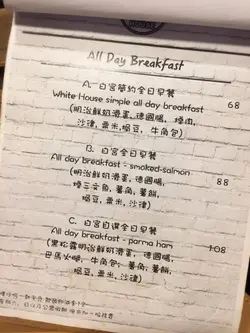 All Day Breakfast
A. 白宮簡約全日早餐 68
White House simple all day breakfast
(明治鮮奶滑蛋, 德國腸,
沙律, 粟米, 焗豆, 牛角包)
B. 白宮全日早餐
All day breakfast - smoked-salmon 88
(明治鮮奶滑蛋, 德國腸,
煙三文魚, 薯角, 薯餅,
焗豆, 粟米, 沙律)
C. 白宮自選全日早餐
All day breakfast - parma ham 108
(黑松露明治鮮奶滑蛋, 德國腸,
巴馬火腿, 牛角包, 薯角, 薯餅,
焗豆, 粟米, 沙律)